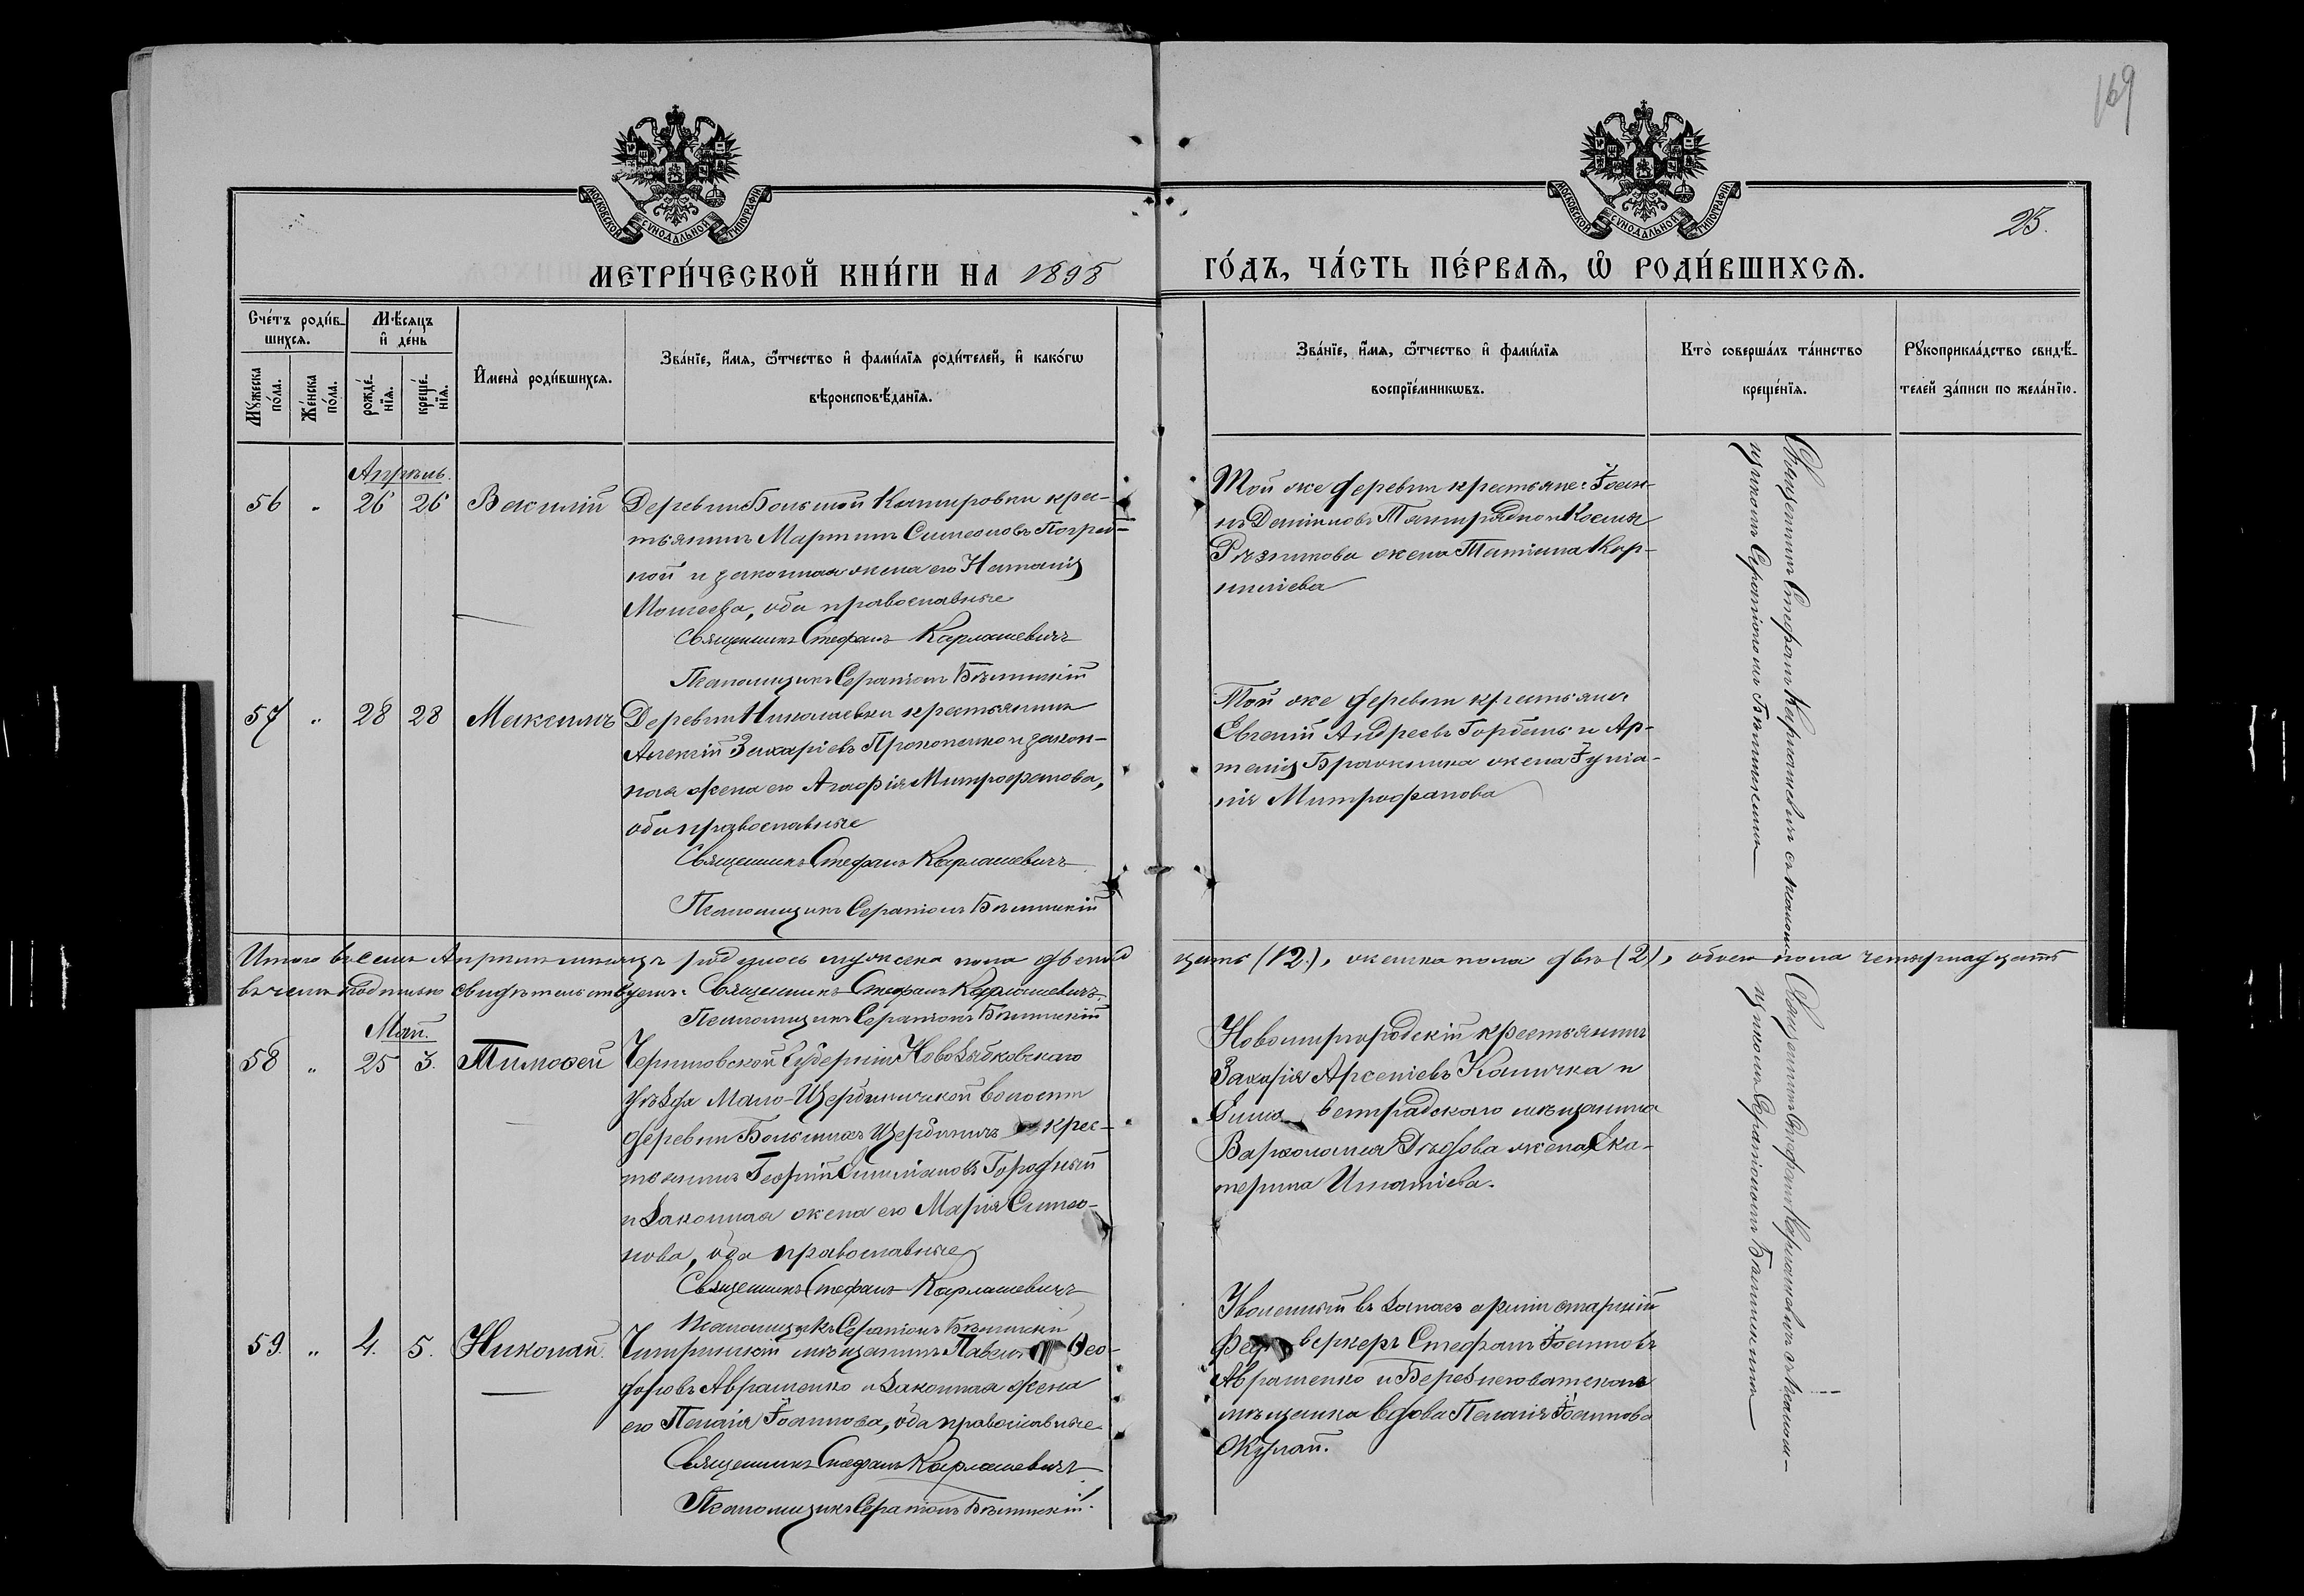 169
МОСКОВСКОЙ СѴНОДАЛЬНОЙ ТИПОГРАФІИ
МОСКОВСКОЙ СѴНОДАЛЬНОЙ ТИПОГРАФІИ
25.
МЕТРИ́ЧЕСКОЙ КНИ́ГИ НА 1898
ГО́ДЪ, ЧА́СТЬ ПЕ́РВАѦ, Ѡ РОДИ́ВШИХСѦ.
Сче́тъ роди́в-
шихсѧ.
Мѣ́сѧцъ
и де́нь
Му́жеска
по́ла.
Же́нска
по́ла.
рожде́-
нїѧ.
креще́-
нїѧ.
Имена̀ роди́вшихсѧ.
Зва́нїе, и́мѧ, ѻ́тчество и фами́лїѧ роди́телей, и како́гѡ
вѣроисповѣ́данїѧ.
Зва́нїе, и́мѧ, ѻ́тчество и фами́лїѧ
воспрїе́мникѡвъ.
Кто̀ соверша́лъ та́инство
креще́нїѧ.
Рꙋкоприкла́дство свидѣ́-
телей за́писи по жела́нїю.
Апрѣль.
56 " 26 26 Василій
Деревни Большой кре-
стьянинъ Мартинъ Симеоновъ
ной и законная жена его Наталія
Моисеева, оба православные
Священникъ Стефанъ Карлашевичъ
Псаломщикъ Серапіонъ
Той же деревни крестьяне: Іоан-
нъ Даніиловъ и Косьмы
Рѣзникова жена Татіана Кор-
ниліева
Священникъ Стефанъ Карлашевичъ съ псалом-
щикомъ Серапіономъ
57 " 28 28 Максимъ
Деревни Николаевки крестьянинъ
Алексій Захаріевъ Прокопенко и закон-
ная жена его Агафія Митрофанова,
оба православные
Священникъ Стефанъ Карлашевичъ
Псаломщикъ Серапіонъ
Той же деревни крестьяне
Евгеній Андреевъ Горбань и Ар-
темія жена Іуліа-
нія Митрофанова
Итого въ семъ Апрѣлѣ мѣсяцѣ родилось мужеска пола двѣнад-
цать (12), женска пола двѣ (2), обоего пола четырнадцать
въ чемъ подписью свидѣтельствуемъ: Священникъ Стефанъ Карлашевичъ
Псаломщикъ Серапіонъ
Май.
58 " 25 3. Тимоѳей
Черниговской Губерніи Новозыбковскаго
уѣзда Мало-Щербиничской волости
деревни Большихъ Щербиничъ крес-
тьянинъ Георгій Городный
и законная жена его Марія Симео-
нова, оба православные
Священникъ Стефанъ Карлашевичъ
Псаломщикъ Серапіонъ
Новомиргородскій крестьянинъ
Захарія Арсеніевъ Каличка и
Елисаветградскаго мѣщанина
Варѳоломея Дѣдова жена Ека-
терина Игнатіева.
Священникъ Стефанъ Карлашевичъ съ псалом-
щикомъ Серапіономъ
59. " 4. 5. Николай.
Чигиринскій мѣщанинъ Павелъ Ѳео-
доровъ Авраменко и законная жена
его Пелагія Іоаннова, оба православные
Священникъ Стефанъ Карлашевичъ
Псаломщикъ Серапіонъ
Уволенный въ запасъ арміи старшій
веркеръ Стефанъ Іоанновъ
Авраменко и
мѣщанка вдова Пелагія Іоаннова